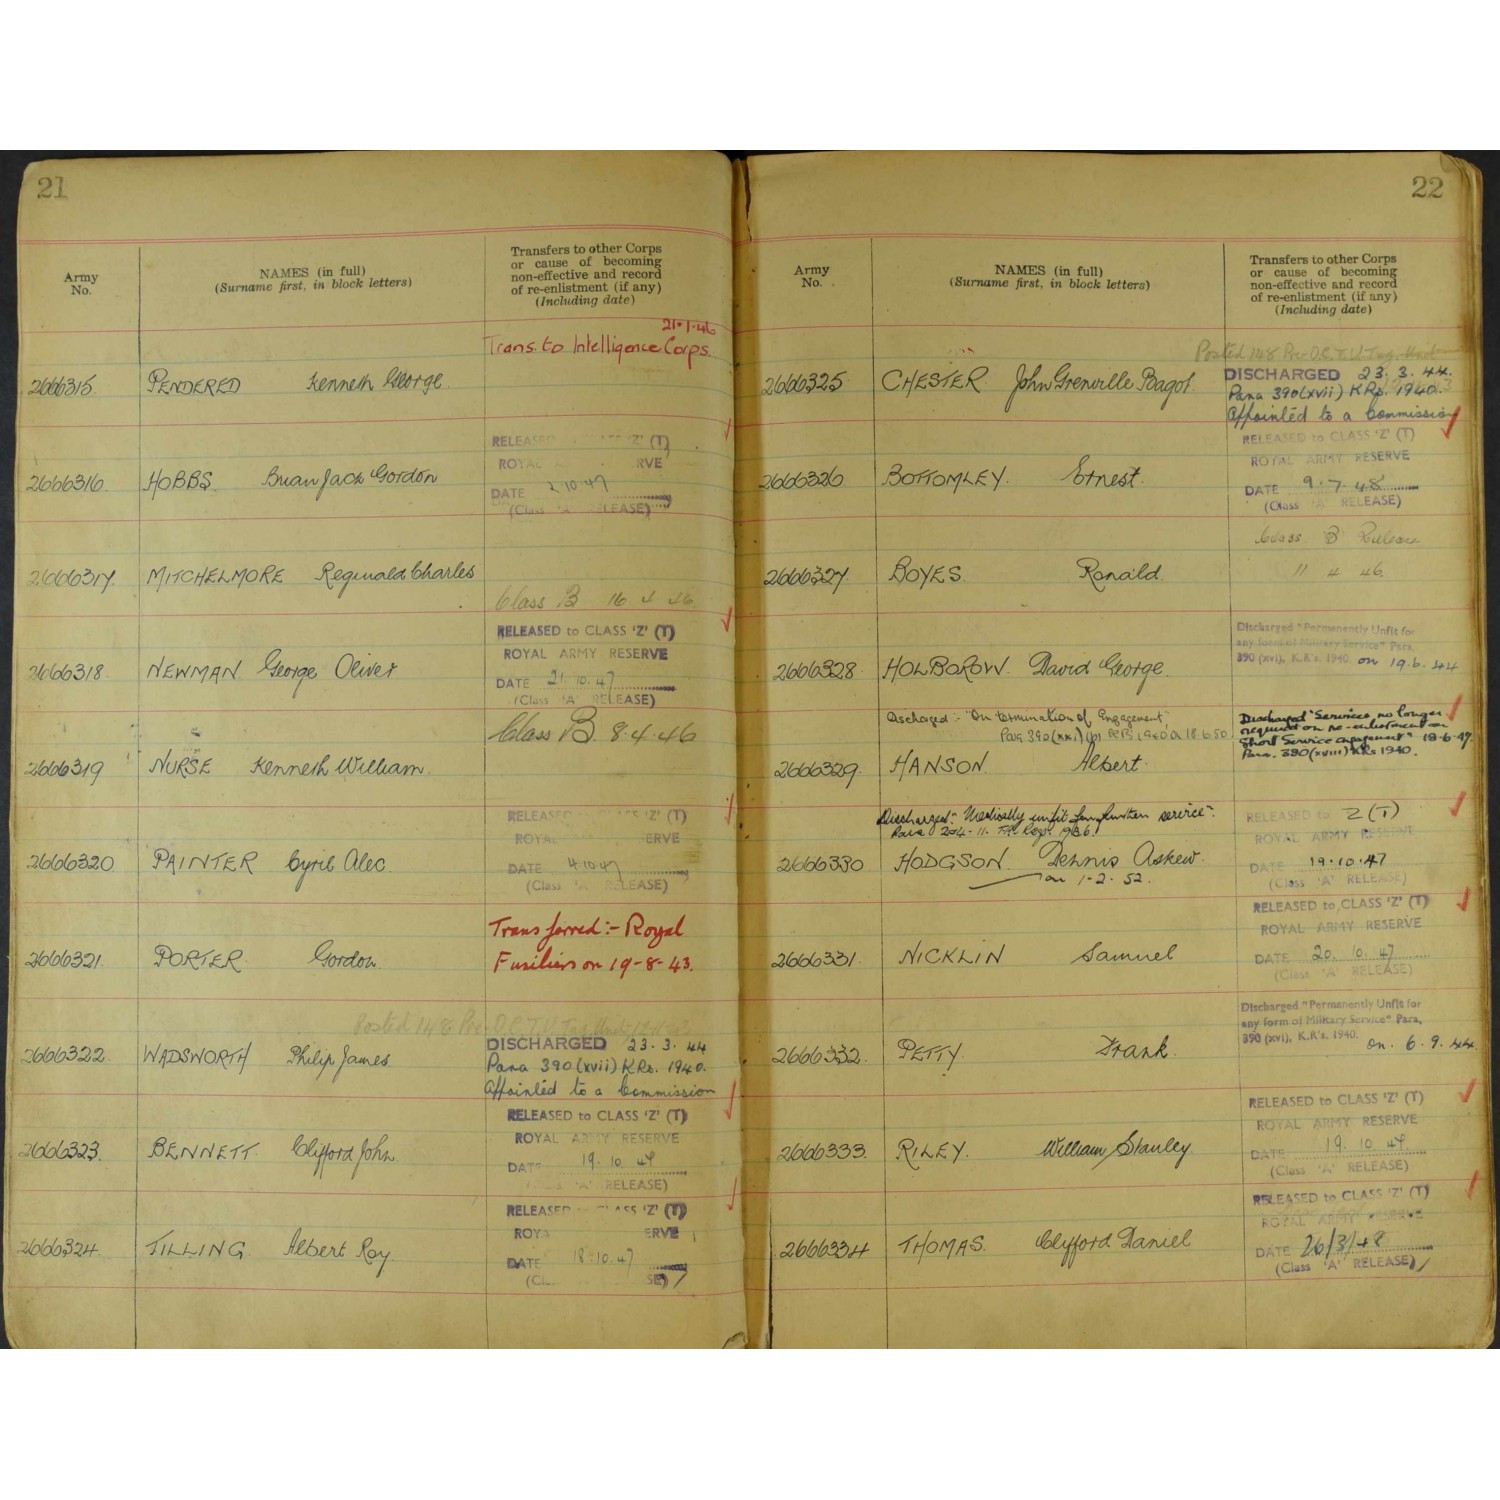 21
Army
No.
NAMES (in full)
(Surname first, in block letters)
Transfers to other Corps
or cause of becoming
non-effective and record
of re-enlistment (if any)
(Including date)
21·1·46
Trans. to Intelligence Corps.
2666315 PENDERED Kenneth George.
RELEASED 'Z' (T)
ROYAL RVE
2666316 HOBBS Brian Jack Gordon
DATE 2 10 47
(Class 'A' RELEASE)
2666317. MITCHELMORE Reginald Charles
Class B 16 4 46
RELEASED to CLASS 'Z' (T)
ROYAL ARMY RESERVE
2666318 NEWMAN George Oliver
DATE 21. 10. 47
(Class 'A' RELEASE)
Class B 8·4·46
2666319 NURSE Kenneth William.
RELEASED CLASS 'Z' (T)
ROYAL ERVE
2666320 PAINTER Cyril Alec.
DATE 4.10.47
(Class 'A' RELEASE)
Transferred:- Royal
Fusiliers on 19-8-43.
2666321. PORTER Gordon.
Posted 148 Pre O.C.T.U. Trg. Unit
2666322. WADSWORTH Philip James
DISCHARGED 23. 3. 44
Para 390 (xvii) K.Rs. 1940.
Appointed to a Commission
RELEASED to CLASS 'Z' (T)
ROYAL ARMY RESERVE
2666323. BENNETT. Clifford John
DATE 19. 10 47
'A' RELEASE)
RELEASED CLASS 'Z' (T)
ROYA ERVE
2666324 TILLING Albert Roy.
DATE 18·10.47
22
Army
No.
NAMES (in full)
(Surname first, in block letters)
Transfers to other Corps
or cause of becoming
non-effective and record
of re-enlistment (if any)
(Including date)
Posted 148 Pre-O.C.T.U. Trg. Unit
2666325 CHESTER John Grenville Bagot.
DISCHARGED 23. 3. 44.
Para 390 (xvii) K.Rs. 1940.
Appointed to a Commission
RELEASED to CLASS 'Z' (T)
ROYAL ARMY RESERVE
2666326 BOTTOMLEY. Ernest.
DATE 9·7·48
(Class 'A' RELEASE)
Class B Release
11 4 46.
2666327. BOYES. Ronald.
Discharged "Permanently Unfit for
any form of Military Service" Para.
390 (xvi), K.R's. 1940. on 19.6.44
2666328 HOLBOROW. David George.
Discharged:- "On termination of Engagement",
Para 390 (xxi) 1940 18.6.50
Discharged "Services no longer
required on re-enlistment on
Short Service engagement" 18-6-47.
Para. 390 (xviii) K.Rs 1940.
2666329. HANSON. Albert.
Discharged:- "Medically unfit for further service".
Para 204-11. T.A. Regs. 1936.
2666330 HODGSON. Dennis Askew.
on 1-2. 52.
RELEASED to Z (T)
ROYAL ARMY RESERVE
DATE 19·10·47
(Class 'A' RELEASE)
RELEASED to CLASS 'Z' (T)
ROYAL ARMY RESERVE
2666331. NICKLIN Samuel
DATE 20. 10. 47
(Class 'A' RELEASE)
Discharged "Permanently Unfit for
any form of Military Service" Para,
390 (xvi), K.R's. 1940. on. 6.9.44.
2666332. PETTY Frank.
RELEASED to CLASS 'Z' (T)
ROYAL ARMY RESERVE
2666333. RILEY. William Stanley
DATE 19. 10 47
(Class 'A' RELEASE)
RELEASED to CLASS 'Z' (T)
ROYAL ARMY RESERVE
2666334 THOMAS. Clifford Daniel
DATE 26/3/48
(Class 'A' RELEASE)